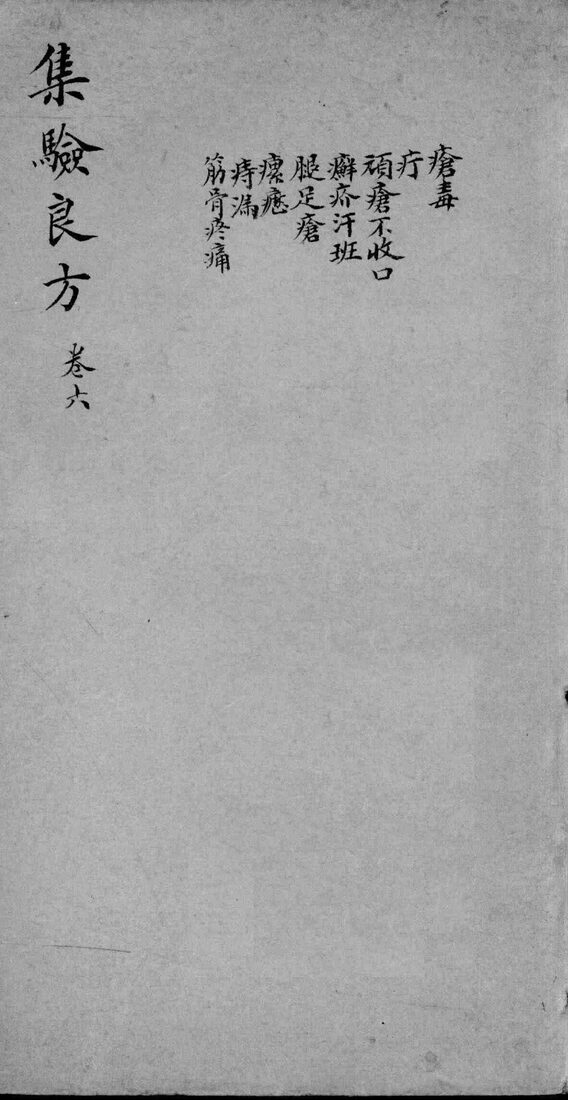 瘡毒
疔
頑瘡不收口
癬疥汗班
腿足瘡
瘰癧
痔漏
筋骨疼痛
集驗良方 卷六